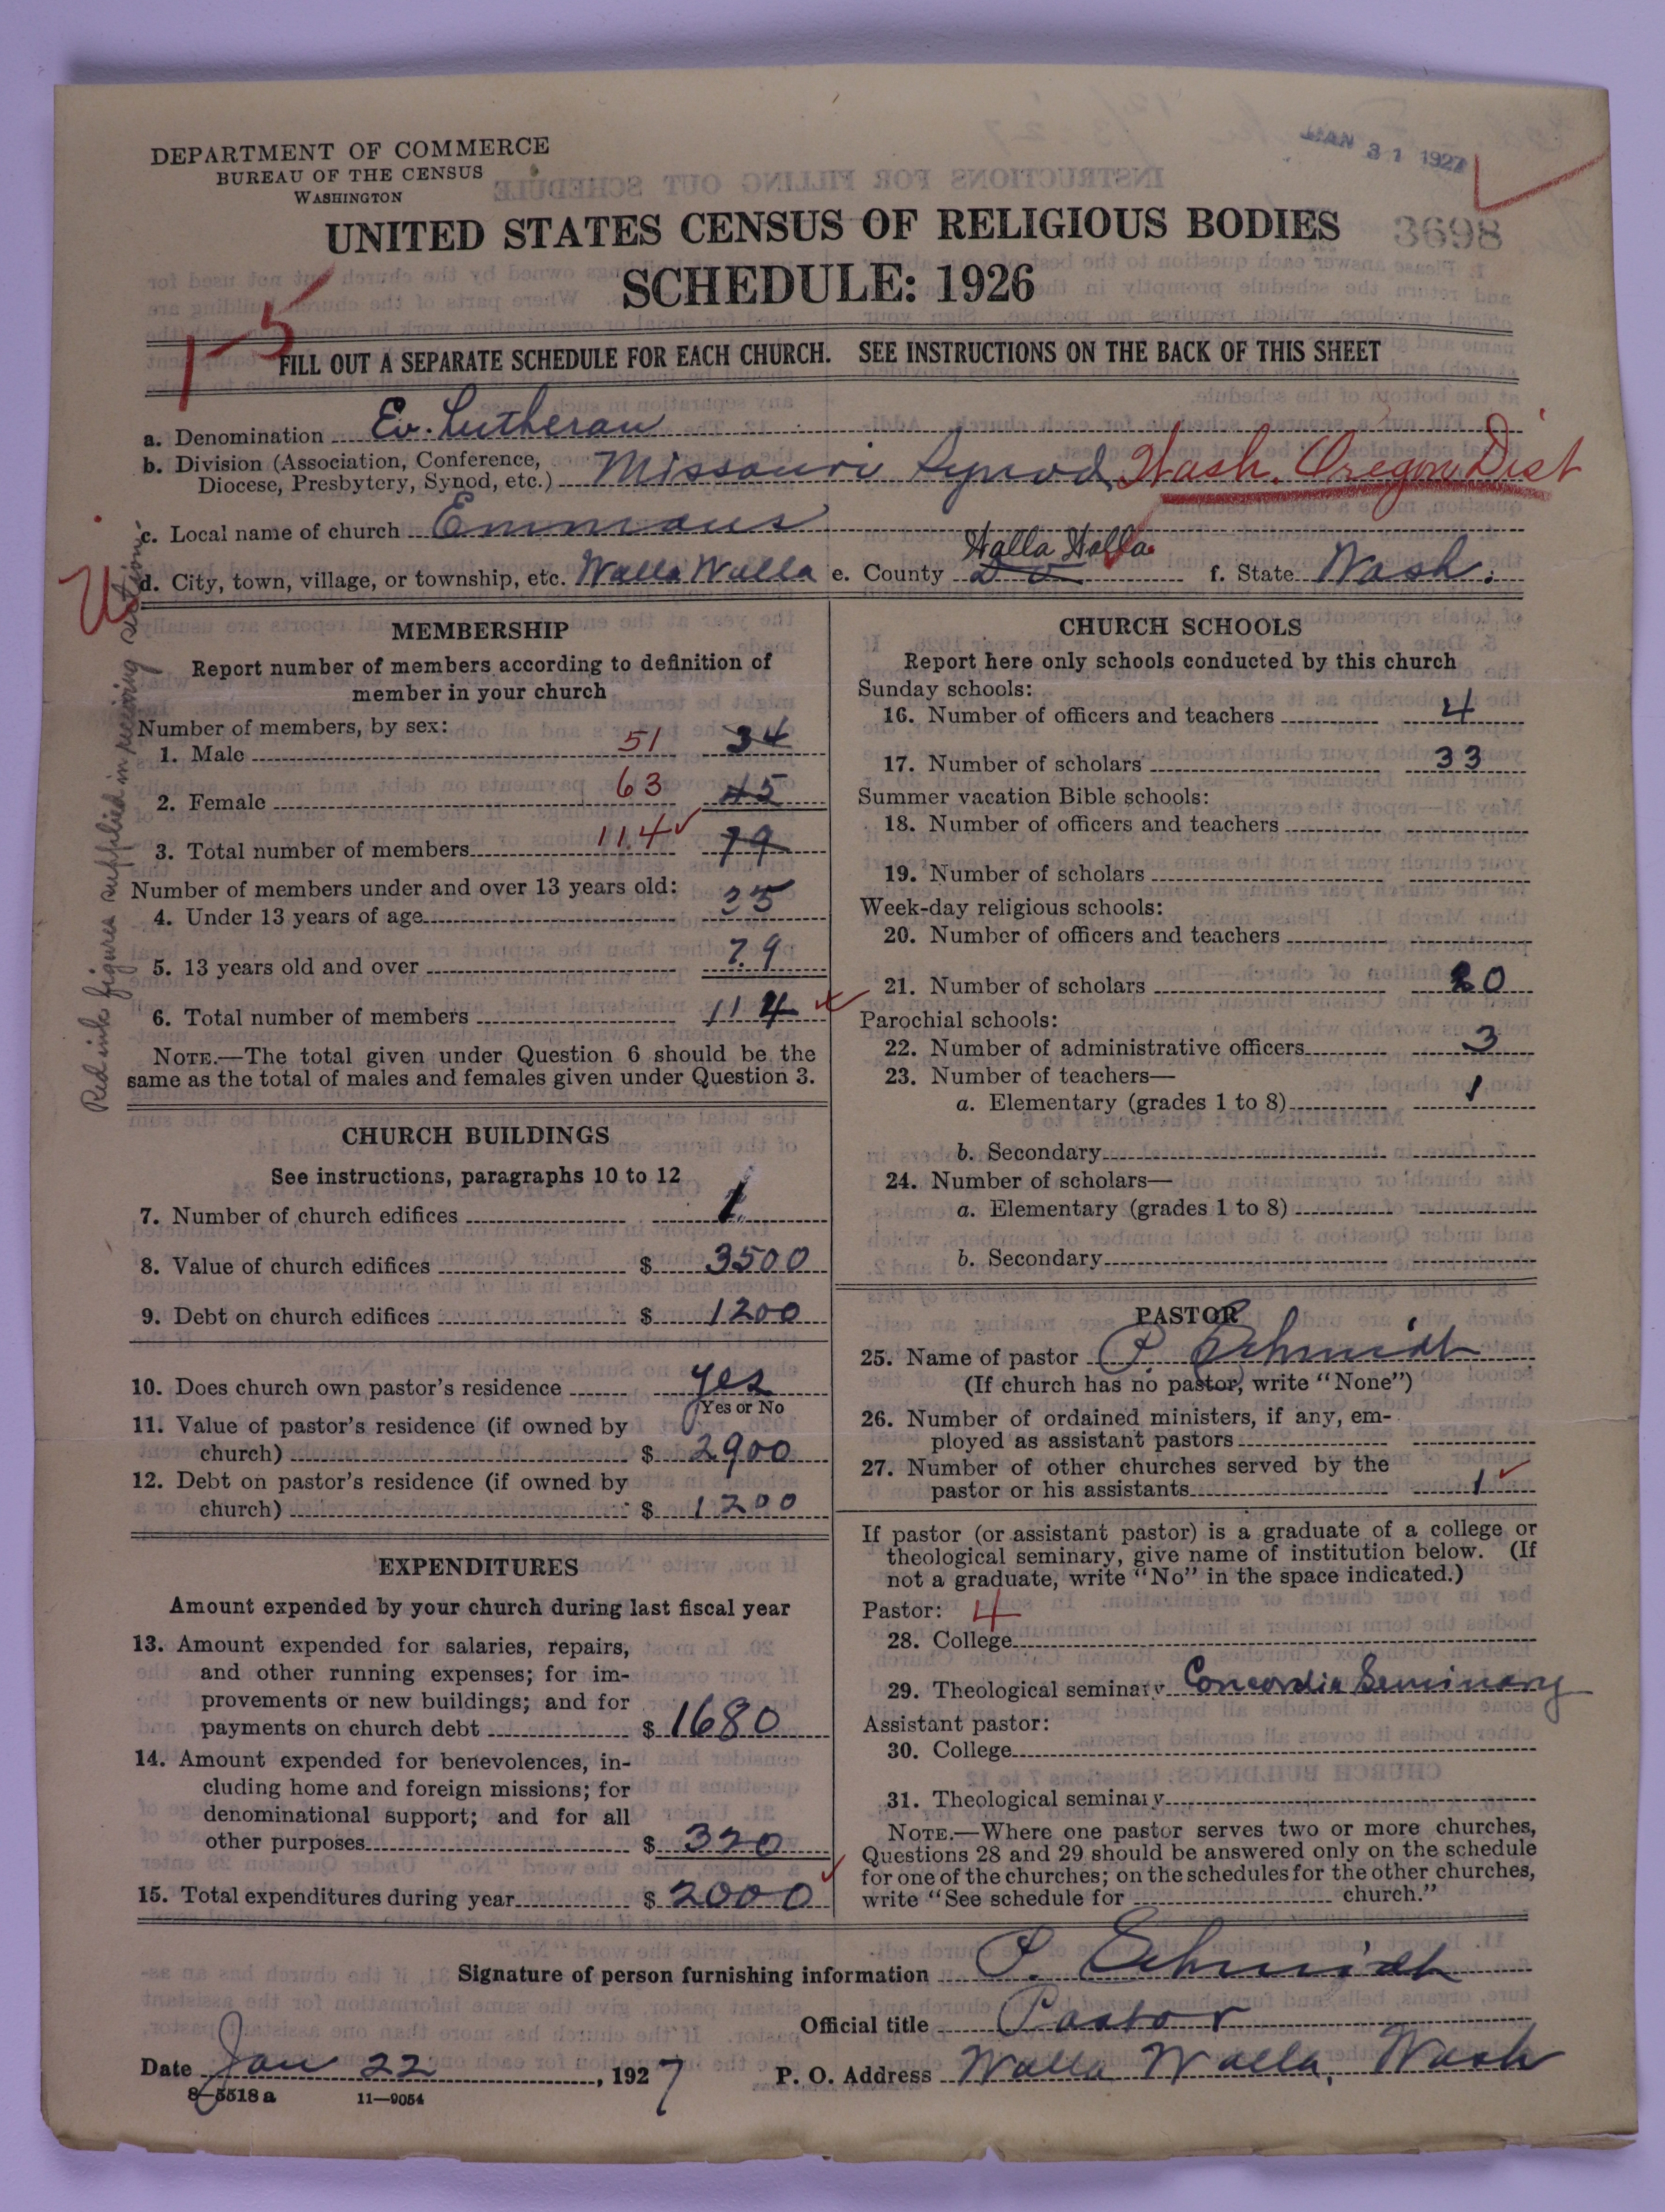 JAN 31 1927
DEPARTMENT OF COMMERCE
BUREAU OF THE CENSUS
WASHINGTON
UNITED STATES CENSUS OF RELIGIOUS BODIES
3698
SCHEDULE: 1926
1-5
FILL OUT A SEPARATE SCHEDULE FOR EACH CHURCH. SEE INSTRUCTIONS ON THE BACK OF THIS SHEET
a. Denomination Ev. Lutheran
b. Division (Association, Conference, Diocese, Presbytery, Synod, etc.) Missouri Synod, Wash. Oregon Dist
c. Local name of church Emmaus
d. City, town, village, or township, etc. Walla Walla e. County Do Walla Walla f. State Wash.
Red ink figures supplied in receiving section.
MEMBERSHIP
Report number of members according to definition of
member in your church
Number of members, by sex:
1. Male 51 34
2. Female 63 45
3. Total number of members 114 79
Number of members under and over 13 years old:
4. Under 13 years of age 35
5. 13 years old and over 79
6. Total number of members 114
NOTE.—The total given under Question 6 should be the
same as the total of males and females given under Question 3.
CHURCH BUILDINGS
See instructions, paragraphs 10 to 12
7. Number of church edifices 1
8. Value of church edifices $ 3500
9. Debt on church edifices $ 1200
10. Does church own pastor's residence yes
Yes or No
11. Value of pastor's residence (if owned by
church) $ 2900
12. Debt on pastor's residence (if owned by
church) $ 1200
EXPENDITURES
Amount expended by your church during last fiscal year
13. Amount expended for salaries, repairs,
and other running expenses; for im-
provements or new buildings; and for
payments on church debt $ 1680
14. Amount expended for benevolences, in-
cluding home and foreign missions; for
denominational support; and for all
other purposes $ 320
15. Total expenditures during year $ 2000
CHURCH SCHOOLS
Report here only schools conducted by this church
Sunday schools:
16. Number of officers and teachers 4
17. Number of scholars 33
Summer vacation Bible schools:
18. Number of officers and teachers
19. Number of scholars
Week-day religious schools:
20. Number of officers and teachers
21. Number of scholars 20
Parochial schools:
22. Number of administrative officers 3
23. Number of teachers—
a. Elementary (grades 1 to 8) 1
b. Secondary
24. Number of scholars—
a. Elementary (grades 1 to 8)
b. Secondary
PASTOR
25. Name of pastor P. Schmidt
(If church has no pastor, write "None")
26. Number of ordained ministers, if any, em-
ployed as assistant pastors
27. Number of other churches served by the
pastor or his assistants 1
If pastor (or assistant pastor) is a graduate of a college or
theological seminary, give name of institution below. (If
not a graduate, write "No" in the space indicated.)
Pastor: 4
28. College
29. Theological seminary Concordia Seminary
Assistant pastor:
30. College
31. Theological seminary
NOTE.—Where one pastor serves two or more churches,
Questions 28 and 29 should be answered only on the schedule
for one of the churches; on the schedules for the other churches,
write "See schedule for church."
Signature of person furnishing information P. Schmidt
Official title Pastor
Date Jan 22, 1927 P. O. Address Walla Walla, Wash
8-5518 a 11—9054